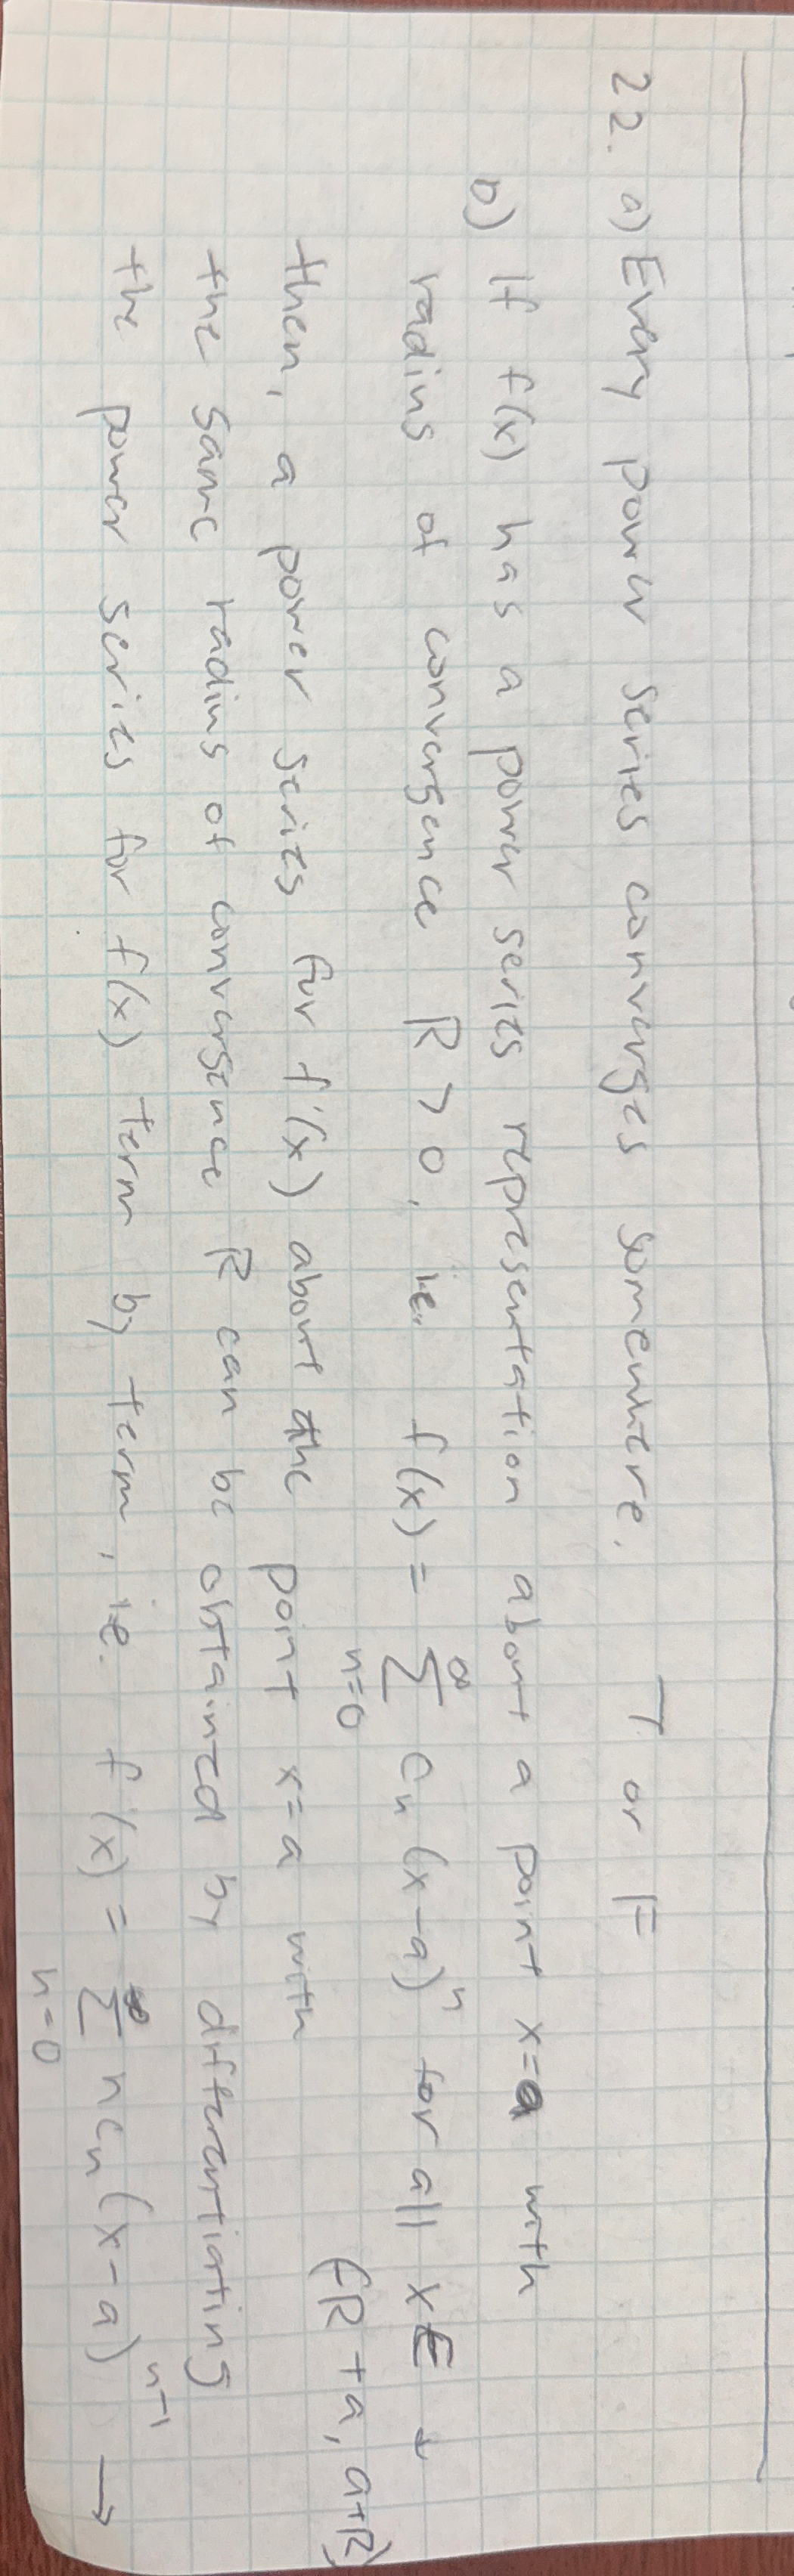 22. a) Every power series converges somewhere. T or F
b) If f(x) has a power series representation about a point x=a with
radius of convergence R>0, i.e. f(x) = ∞∑n=0 cn (x-a)^n for all x∈ ↓
(-R+a, a+R)
then, a power series for f'(x) about the point x=a with
the same radius of convergence R can be obtained by differentiating
the power series for f(x) term by term, i.e. f'(x) = ∞∑n=0 ncn(x-a)^n-1 →